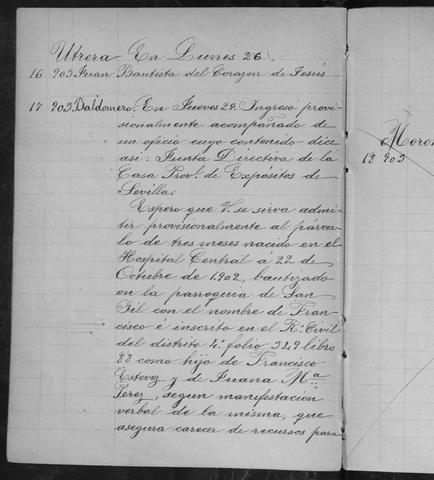 Utrera En Lunes 26.
16 903 Juan Bautista del Corazon de Jesús
17 903 Baldomero. En Jueves 29. Ingresó provi-
sionalmente acompañado de
un oficio cuyo contenido dice
asi: Junta Directiva de la
Casa Provl. de Expósitos de
Sevilla.
Espero que V. se sirva admi-
tir provisionalmente al párvu-
lo de tres meses nacido en el
Hospital Central á 22 de
Octubre de 1.902, bautizado
en la parroquia de San
Gil con el nombre de Fran-
cisco é inscrito en el Rº. Civil
del distrito 4º. folio 349 libro
88 como hijo de Francisco
Estevez y de Juana Mª.
Perez, segun manifestación
verbal de la misma, que
asegura carecer de recursos para
18 903